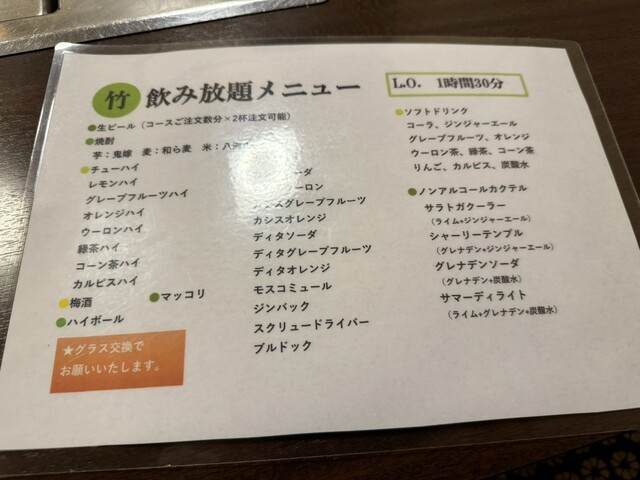 竹 飲み放題メニュー
L.O. 1時間30分
●生ビール（コースご注文数分×2杯注文可能）
●焼酎
芋：鬼嫁 麦：和ら麦 米：八
●チューハイ
レモンハイ
グレープフルーツハイ
オレンジハイ
ウーロンハイ
緑茶ハイ
コーン茶ハイ
カルピスハイ
●梅酒 ●マッコリ
●ハイボール
★グラス交換で
お願いいたします。
ーダ
ーロン
グレープフルーツ
カシスオレンジ
ディタソーダ
ディタグレープフルーツ
ディタオレンジ
モスコミュール
ジンバック
スクリュードライバー
ブルドック
●ソフトドリンク
コーラ、ジンジャーエール
グレープフルーツ、オレンジ
ウーロン茶、緑茶、コーン茶
りんご、カルピス、炭酸水
●ノンアルコールカクテル
サラトガクーラー
（ライム+ジンジャーエール）
シャーリーテンプル
（グレナデン+ジンジャーエール）
グレナデンソーダ
（グレナデン+炭酸水）
サマーディライト
（ライム+グレナデン+炭酸水）